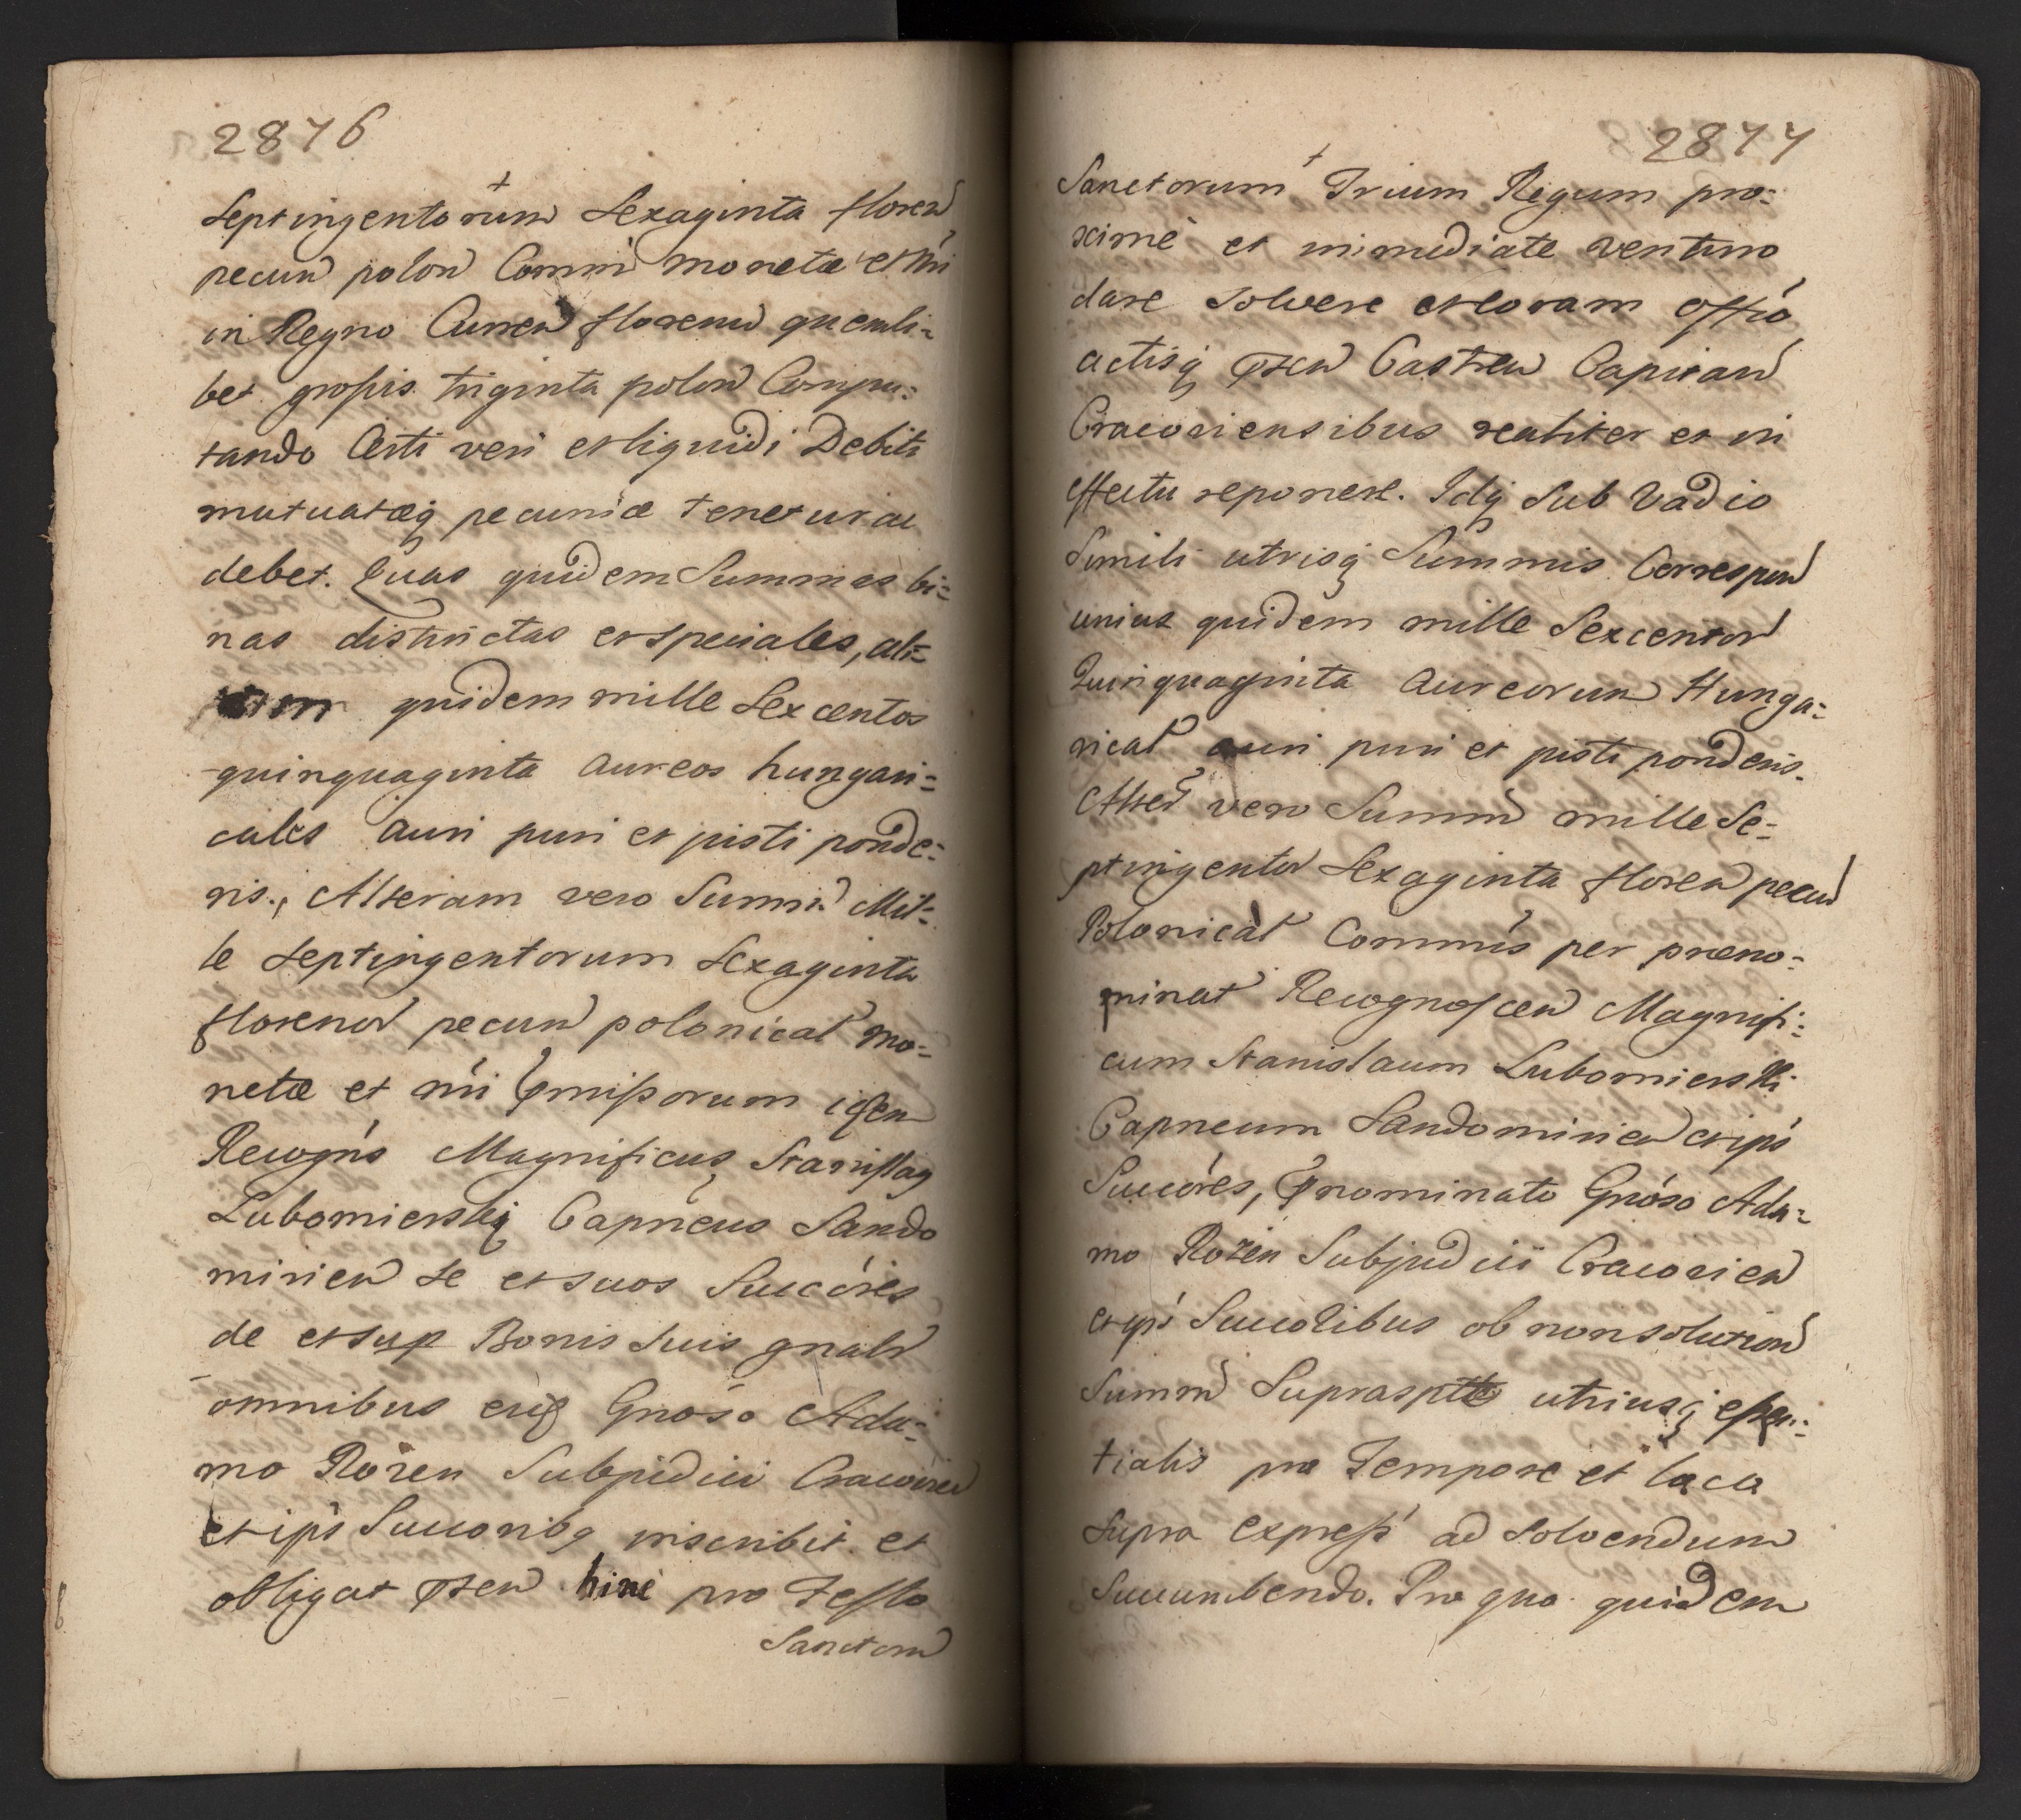 2876
Septingentorum Sexaginta floren
pecun polon Comm̃ monetæ et nri
in Regno Curren florenu quemli=
bet grossis triginta polon Compu=
tando Certi veri et liquidi Debiti
mutuatæq pecuniæ tenetur ac
debet. Quas quidem Summas bi=
nas distinctas et speciales, ali=
quidem mille Sexcentos
quinquaginta aureos hungari=
cales auri puri et justi ponde=
ris., Alteram vero Summã Mil=
le Septingentorum Sexaginta
florenor pecun polonical mo=
netæ et nri pmissorum idem
Recogns Magnificus Stanislaq
Lubomierskq Capneus Sando
mirien se et suos Succóres
de et sup Bonis suis gnalr
omnibus eiq Gnoso Ada=
mo Rożen Subjudici Cracovien
et ipś Succoribq inscribit et
obligat pten hinc pro Festo
Sanctorum
2877
Sanctorum Trium Regum pro=
ximè et immediate venturo
dare solvere et coram Offio
actisq pten Castren Capitan
Cracoviensibus realiter et in
effectu reponere. Idq Sub Vadio
Simili utrisq Summis Correspon
unius quidem mille Sexcentor
Quinquaginta aureorum Hunga=
rical auri puri et justi ponderis.
Alter vero Summ mille Se=
ptingentor Sexaginta floren pecun
Polonical Commis per præno=
minat Recognoscen Magnifi=
cum Stanislaum Lubomierski
Capneum Sandomirien et ipś
Succóres, pnominato Gnóso Ada=
mo Rożen Subjudicii Cracovien
et ipś Succoribus ob non solution
Summ Suprasptæ utriusq essen=
tialis pro Tempore et loco
supra express ad solvendum
Succumbendo. Pro quo quidem